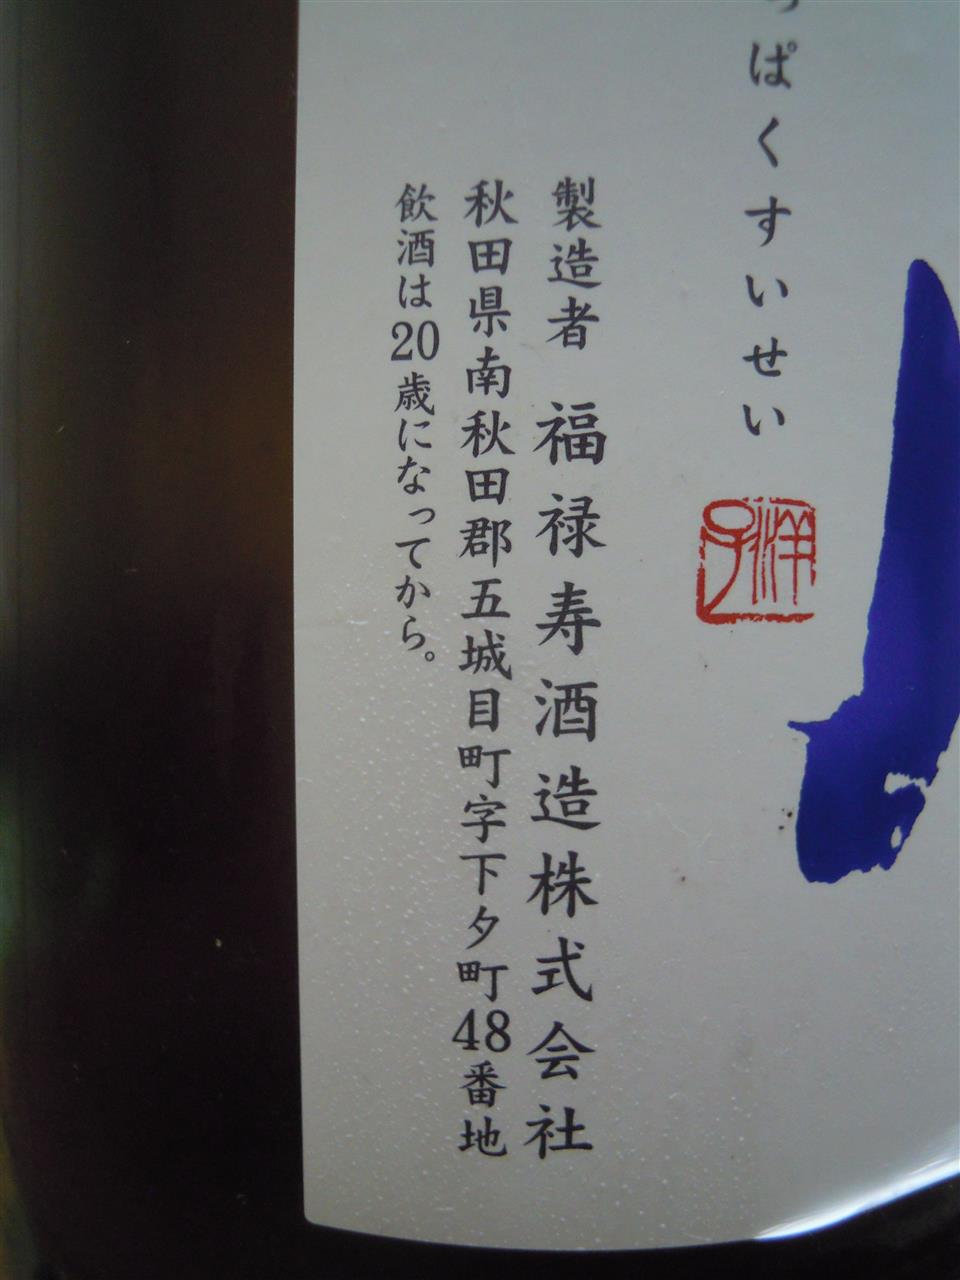 っぱくすいせい
製造者 福禄寿酒造株式会社
秋田県南秋田郡五城目町字下夕町48番地
飲酒は20歳になってから。